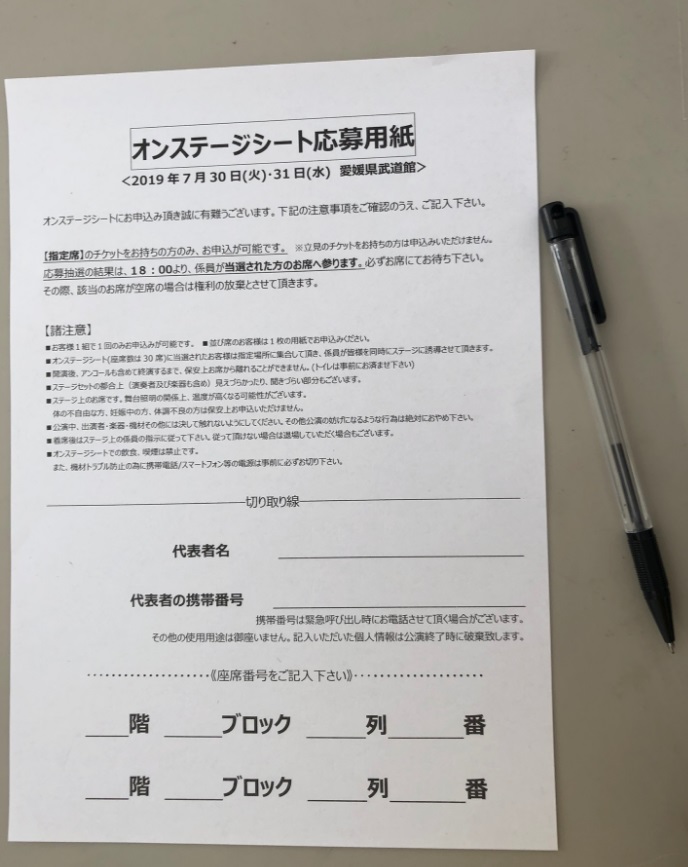 オンステージシート応募用紙
<2019年7月30日(火)・31日(水) 愛媛県武道館>
オンステージシートにお申込み頂き誠に有難うございます。下記の注意事項をご確認のうえ、ご記入下さい。
【指定席】のチケットをお持ちの方のみ、お申込が可能です。 ※立見のチケットをお持ちの方は申込みいただけません。
応募抽選の結果は、18：00より、係員が当選された方のお席へ参ります。必ずお席にてお待ち下さい。
その際、該当のお席が空席の場合は権利の放棄とさせて頂きます。
【諸注意】
■お客様1組で1回のみお申込みが可能です。 ■並び席のお客様は1枚の用紙でお申込みください。
■オンステージシート(座席数は30席)に当選されたお客様は指定場所に集合して頂き、係員が皆様を同時にステージに誘導させて頂きます。
■開演後、アンコールも含めて終演するまで、保安上お席から離れることができません。(トイレは事前にお済ませ下さい)
■ステージセットの都合上（演奏者及び楽器も含め）見えづらかったり、聞きづらい部分もございます。
■ステージ上のお席です。舞台照明の関係上、温度が高くなる可能性がございます。
体の不自由な方、妊娠中の方、体調不良の方は保安上お申込いただけません。
■公演中、出演者・楽器・機材その他には決して触れないようにしてください。その他公演の妨げになるような行為は絶対におやめ下さい。
■着席後はステージ上の係員の指示に従って下さい。従って頂けない場合は退場していただく場合もございます。
■オンステージシートでの飲食、喫煙は禁止です。
また、機材トラブル防止の為に携帯電話/スマートフォン等の電源は事前に必ずお切り下さい。
切り取り線
代表者名
代表者の携帯番号
携帯番号は緊急呼び出し時にお電話させて頂く場合がございます。
その他の使用用途は御座いません。記入いただいた個人情報は公演終了時に破棄致します。
····················《座席番号をご記入下さい》····················
____階 _____ブロック _____列______番
____階 _____ブロック _____列______番